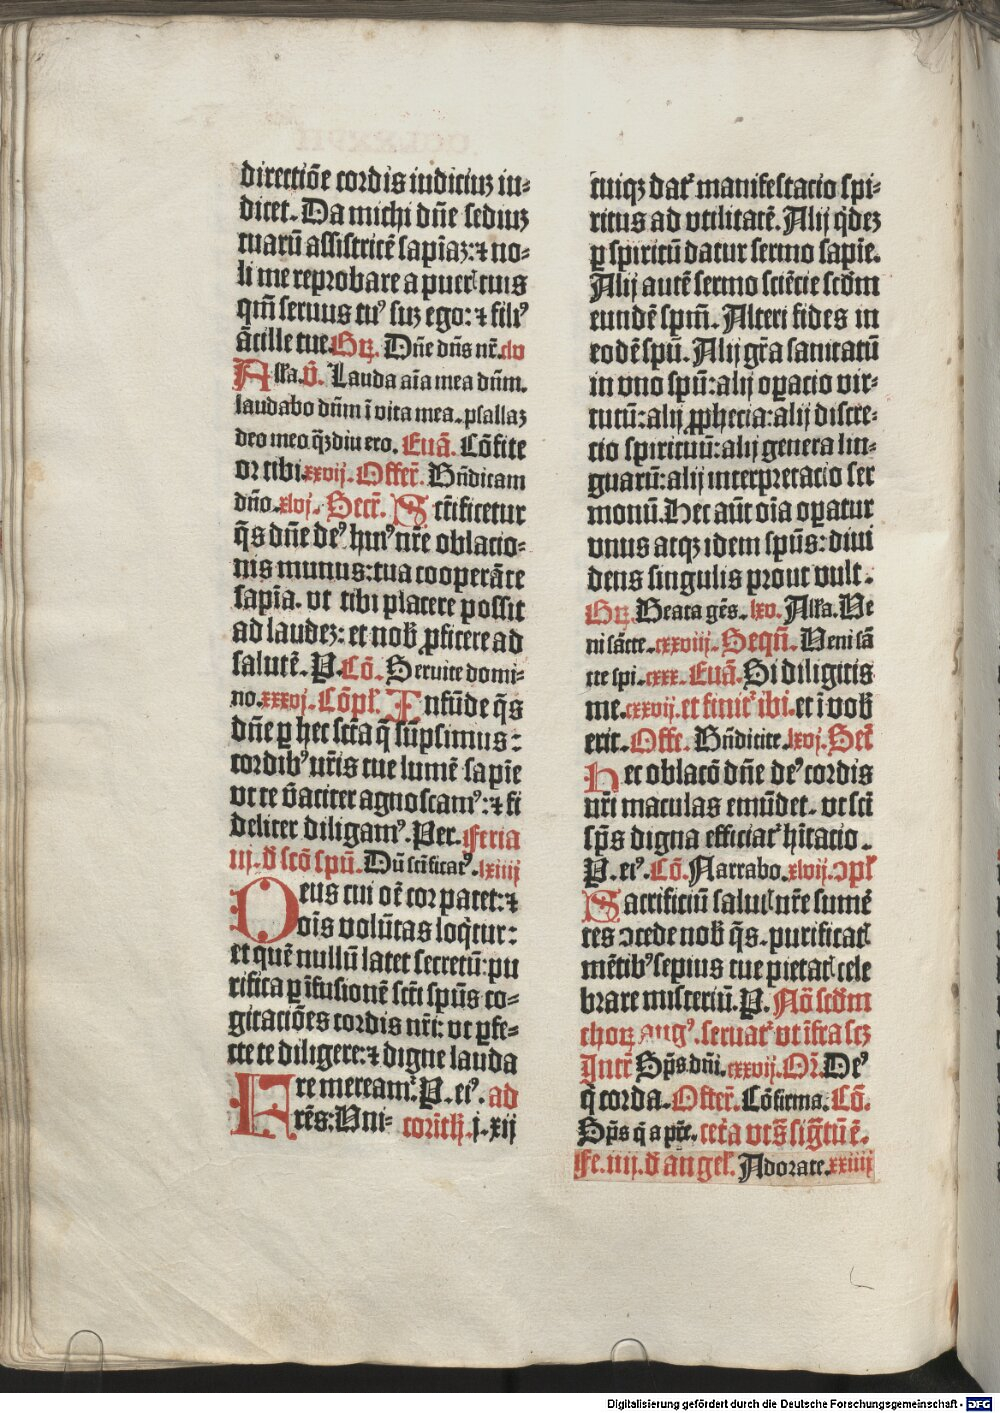 directiōe cordis iudiciuꝫ iu-
dicet. Da michi dn̄e sediuꝫ
tuarū assistricē sapīaꝫ: ⁊ no-
li me reprobare a puerꝭ tuis
qm̄ seruus tuꝰ suꝫ ego: ⁊ filiꝰ
ācille tue. Gꝝ. Dn̄e dn̄s nr̄. lv
Alla. v̄. Lauda aīa mea dn̄m.
laudabo dn̄m ī vita mea. psallaꝫ
deo meo qꝫdiu ero. Euā. Cōfite
or tibi xxvij. Offer̄. Bn̄dicam
dn̄o. xlvj. Secr̄. Sct̄ificetur
q̄s dn̄e deꝰ hmꝰ nr̄e oblacio-
nis munus: tua cooperāte
sapīa. vt tibi placere possit
ad laudeꝫ: et nob̄ ꝓficere ad
salutē. P. Cō. Seruite domi-
no. xxxvj. Cōpl̄. Infūde q̄s
dn̄e ꝑ hec sct̄a q̄ sūpsimus:
cordibꝰ nr̄is tue lumē sapīe
vt te v̄aciter agnoscamꝰ: ⁊ fi
deliter diligamꝰ. Per. Feria
iij. d̄ scō spū. Dū sct̄ificatꝰ. lxiiij
Deus cui oē cor patet: ⁊
oīs volūtas loq̄tur:
et quē nullū latet secretū: pu
rifica ꝑ īfusionē sct̄i spūs co-
gitaciōes cordis nr̄i: vt ꝑfe-
cte te diligere: ⁊ digne lauda
re meream̄. P. eiꝰ. ad
Fr̄es: Vni- corinth̄ j. xij
cuiqꝫ dat̄ manifestacio spi-
ritus ad vtilitatē. Alij q̄deꝫ
ꝑ spiritū datur sermo sapīe.
Alij autē sermo sciēcie scd̄m
eundē spm̄. Alteri fides in
eodē spū. Alij gr̄a sanitatū
in vno spū: alij oꝑacio vir-
tutū: alij ꝓphecia: alij discre-
cio spirituū: alij genera lin-
guarū: alij interpretacio ser
monū. Hec aūt oīa oꝑatur
vnus atqꝫ idem spūs: diui
dens singulis prout vult.
Gꝝ. Beata gēs. lxv. Alla. Ve
ni sācte. cxxviij. Seqn̄. Veni sā
cte spi. cxxx. Euā. Si diligitis
me. cxxvij. et finit̄ ibi. et ī vob̄
erit. Offe. Bn̄dicite. lxvj. Secr̄
Hec oblacō dn̄e deꝰ cordis
nr̄i maculas emūdet. vt sct̄i
spūs digna efficiat̄ hītacio.
P. eiꝰ. Cō. Narrabo. xlvij. ꝯpl̄
Sacrificiū salutꝭ nr̄e sumē
tes ꝯcede nob̄ q̄s. purificatꝭ
mētibꝰ sepius tue pietatꝭ cele
brare misteriū. P. Nō scd̄m
choꝝ augꝰ. seruat̄ vt īfra scꝫ
Intr̄ Spūs dn̄i. cxxvij. Or̄. Deꝰ
q̄ corda. Offer̄. Cōfirma. Cō.
Spūs q̄ a pr̄e. cet̄a vts̄ sig̃tū ē.
Fe. iiij. d̄ angel̄. Adorate. xxiiij
Digitalisierung gefördert durch die Deutsche Forschungsgemeinschaft - DFG